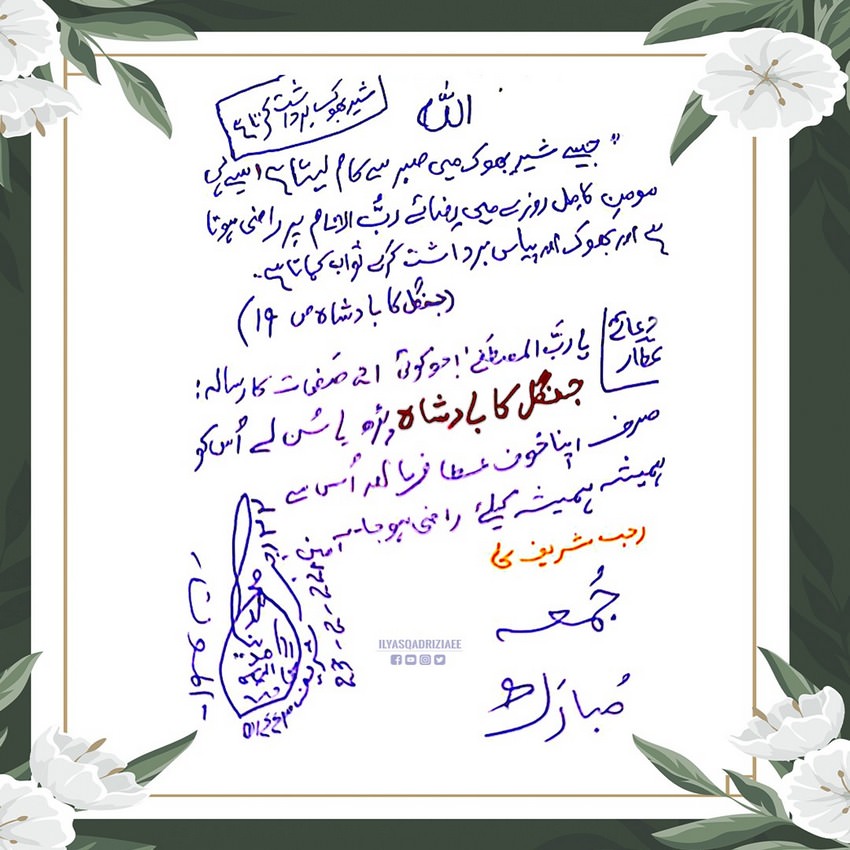 اللہ
شیر بھوک برداشت کرتا ہے
"جیسے شیر بھوک میں صبر سے کام لیتا ہے ایسے ہی
مومنِ کامل روزے میں رضائے ربُّ الانام پر راضی ہوتا
ہے اور بھوک اور پیاس برداشت کرکے ثواب کماتا ہے۔
(جنگل کا بادشاہ ص 19)
دعائے عطّار
یا ربَّ المصطفےٰ! جو کوئی صَفحات کا رسالہ:
جنگل کا بادشاہ پڑھ یا سُن لے اُس کو
صرف اپنا خوف عطا فرما اور اُس سے
ہمیشہ ہمیشہ کیلئے راضی ہوجا۔ آمین
رجب شریف کا
جُمعہ
مُبارَک
ILYASQADRIZIAEE